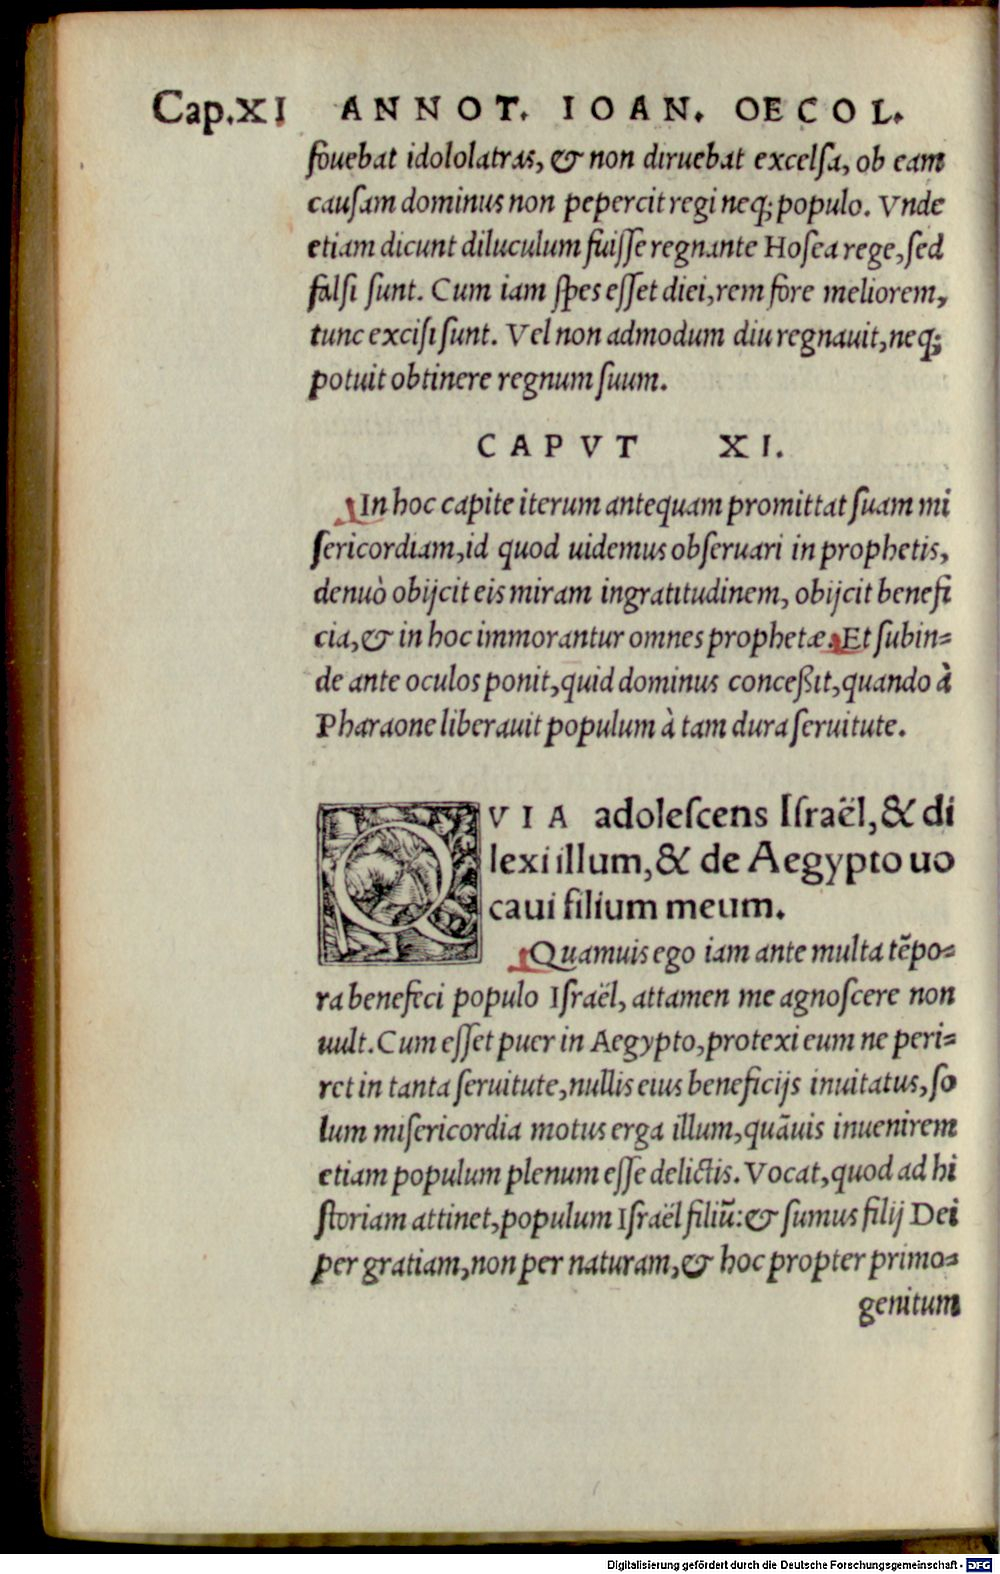 Cap.XI ANNOT. IOAN. OECOL.
fouebat idololatras, & non diruebat excelſa, ob eam
cauſam dominus non pepercit regi neq; populo. Vnde
etiam dicunt diluculum fuiſſe regnante Hoſea rege, ſed
falſi ſunt. Cum iam ſpes eſſet diei, rem fore meliorem,
tunc exciſi ſunt. Vel non admodum diu regnauit, neq;
potuit obtinere regnum ſuum.
CAPVT XI.
In hoc capite iterum antequam promittat ſuam mi
ſericordiam, id quod uidemus obſeruari in prophetis,
denuò obijcit eis miram ingratitudinem, obijcit benefi
cia, & in hoc immorantur omnes prophetæ. Et ſubin=
de ante oculos ponit, quid dominus conceßit, quando à
Pharaone liberauit populum à tam dura ſeruitute.
QVIA adoleſcens Iſraël, & di
lexi illum, & de Aegypto uo
caui filium meum.
Quamuis ego iam ante multa tẽpo=
ra benefeci populo Iſraël, attamen me agnoſcere non
uult. Cum eſſet puer in Aegypto, protexi eum ne peri=
ret in tanta ſeruitute, nullis eius beneficijs inuitatus, ſo
lum miſericordia motus erga illum, quãuis inuenirem
etiam populum plenum eſſe delictis. Vocat, quod ad hi
ſtoriam attinet, populum Iſraël filiũ: & ſumus filij Dei
per gratiam, non per naturam, & hoc propter primo=
genitum
Digitalisierung gefördert durch die Deutsche Forschungsgemeinschaft - DFG